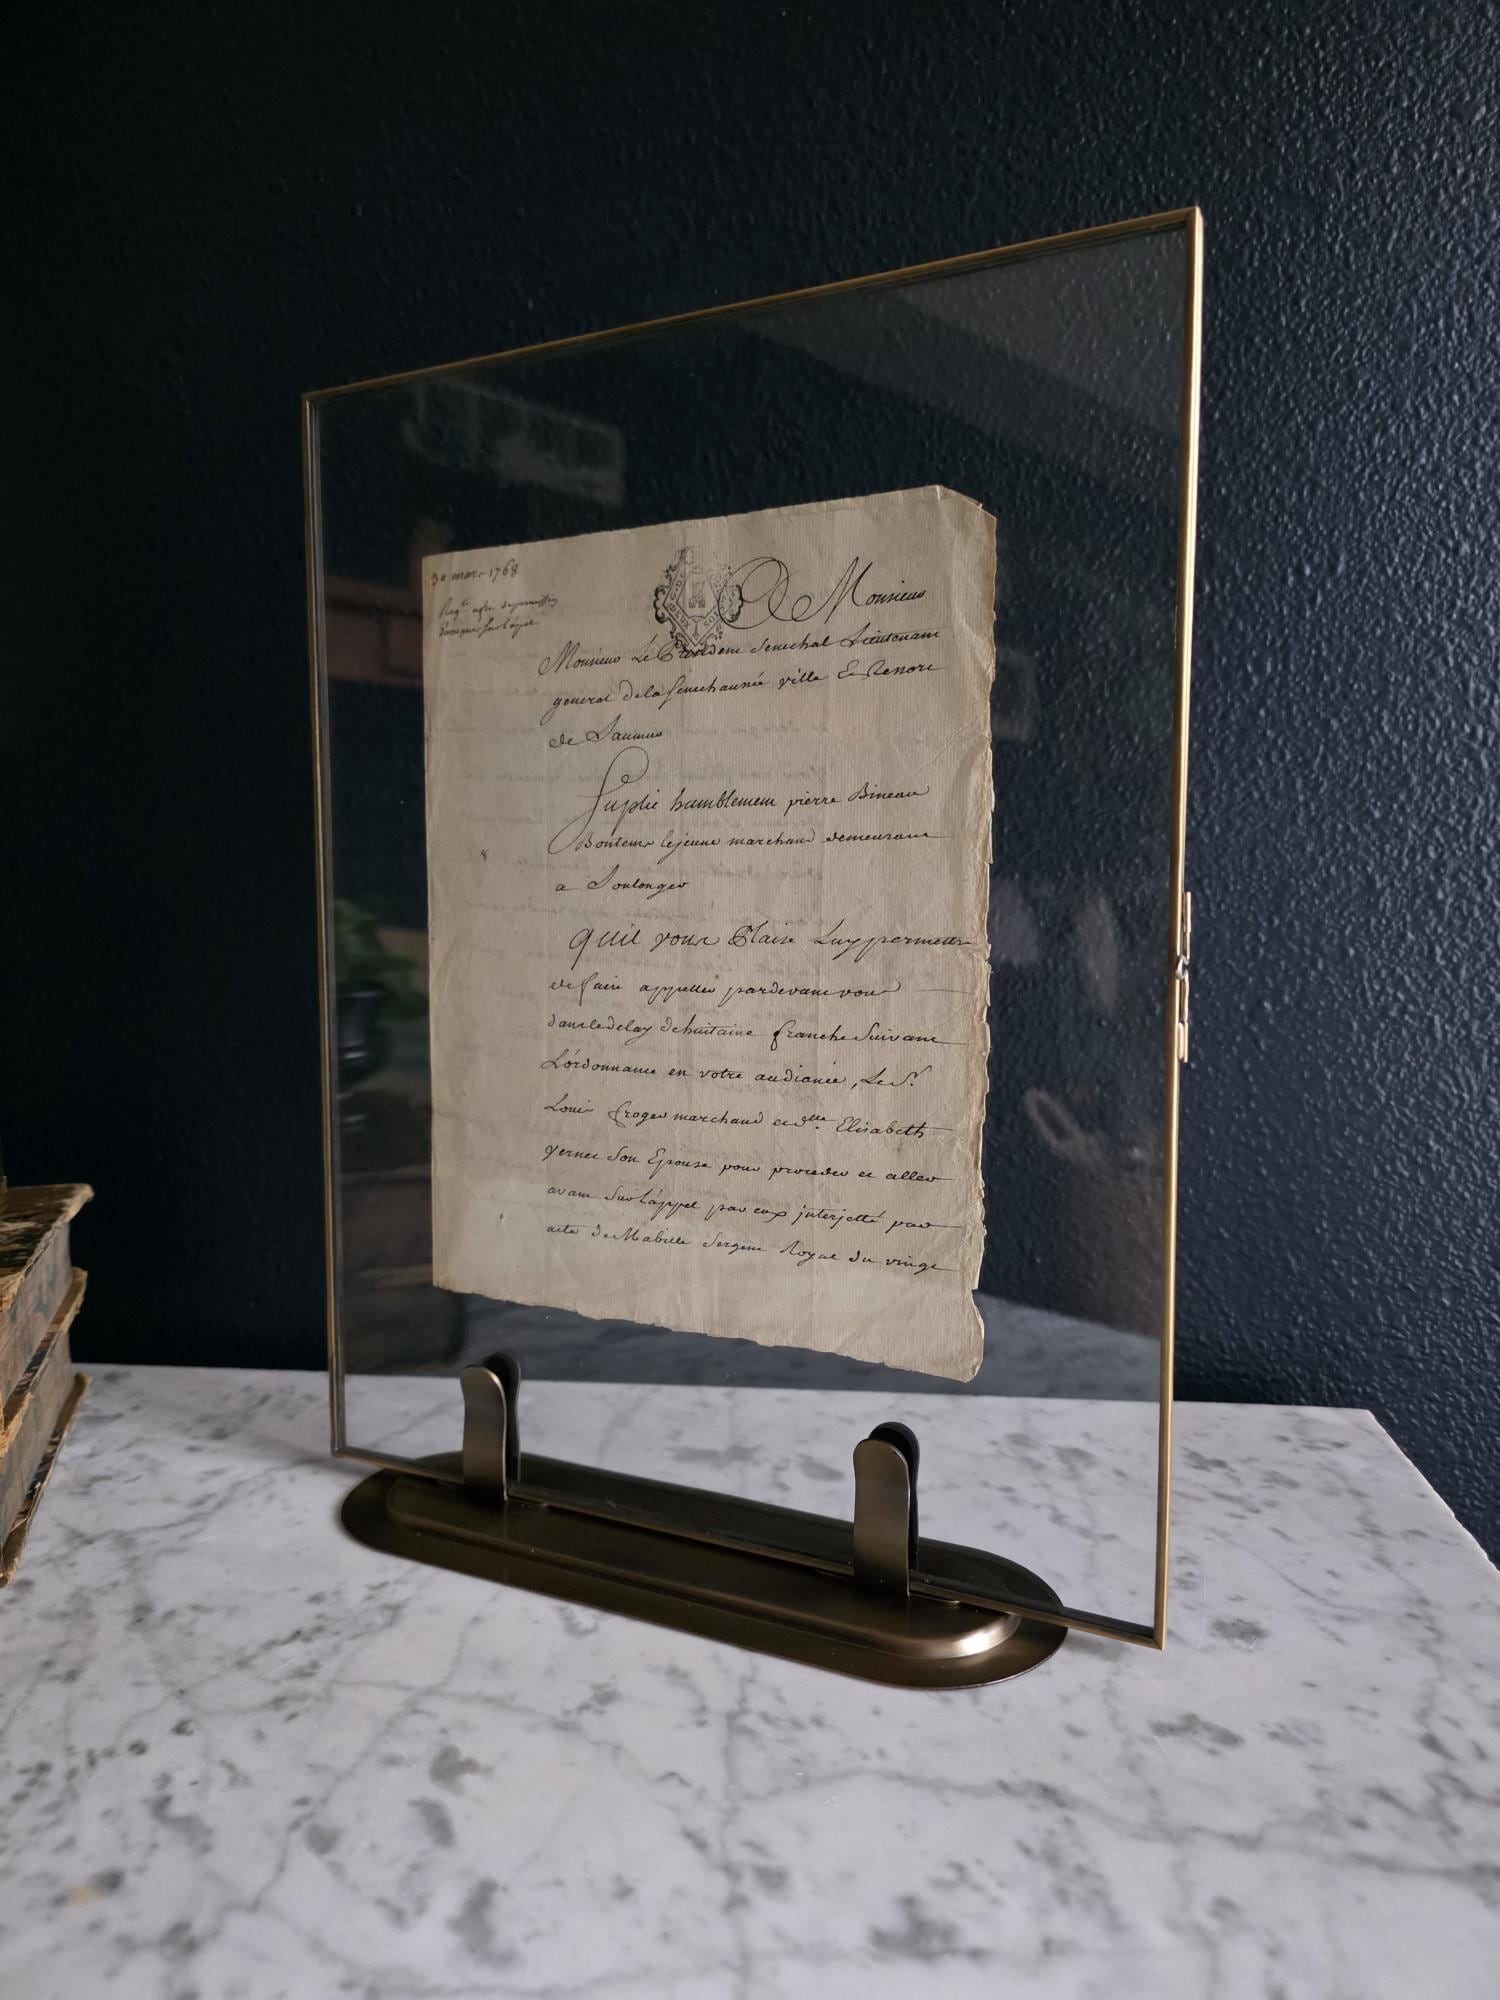 30 mars 1768
Reqte afin de permission
d'anticiper sur l'appel.
GEN. DE
DEUX SOLS
A Monsieur
Monsieur Le President Senechal Lieutenant
general de la Senechaussée ville & Ressort
de Saumur
Suplie humblement pierre Bineau
Bontems lejeune marchand demeurant
a Soulanger
quil vous Plaise Luy permettre
de faire appeller pardevant vous
dans le delay de huitaine franche Suivant
L'ordonnance en votre audiance, Le Sr.
Louis froger marchand et dlle. Elisabeth
Son Epouse pour proceder et aller
avant Sur l'appel par eux interjetté par
acte de Mabille Sergent Royal du vingt